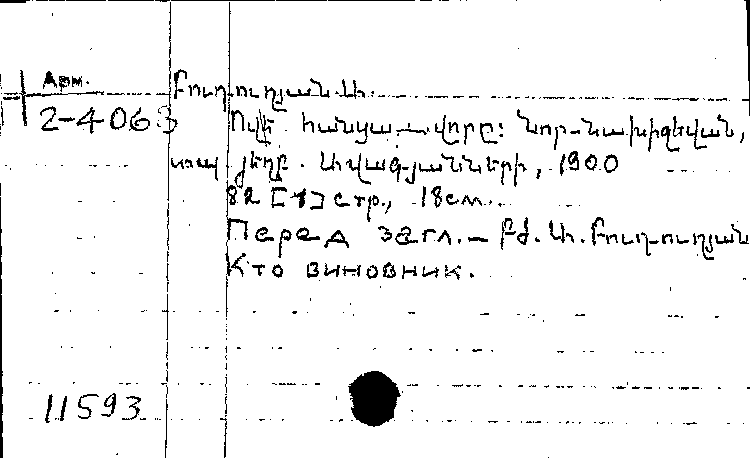 Арм.
Բուդուղյան Ա.
2-4063
Ովէ հանցաւորը: Նոր-Նախիջեվան,
տպ. յեղբ. Ավագյանների, 1900
82 [1] стр., 18см.
Перед загл. – բժ. Ա. Բուդուղյան
Кто виновник.
11593